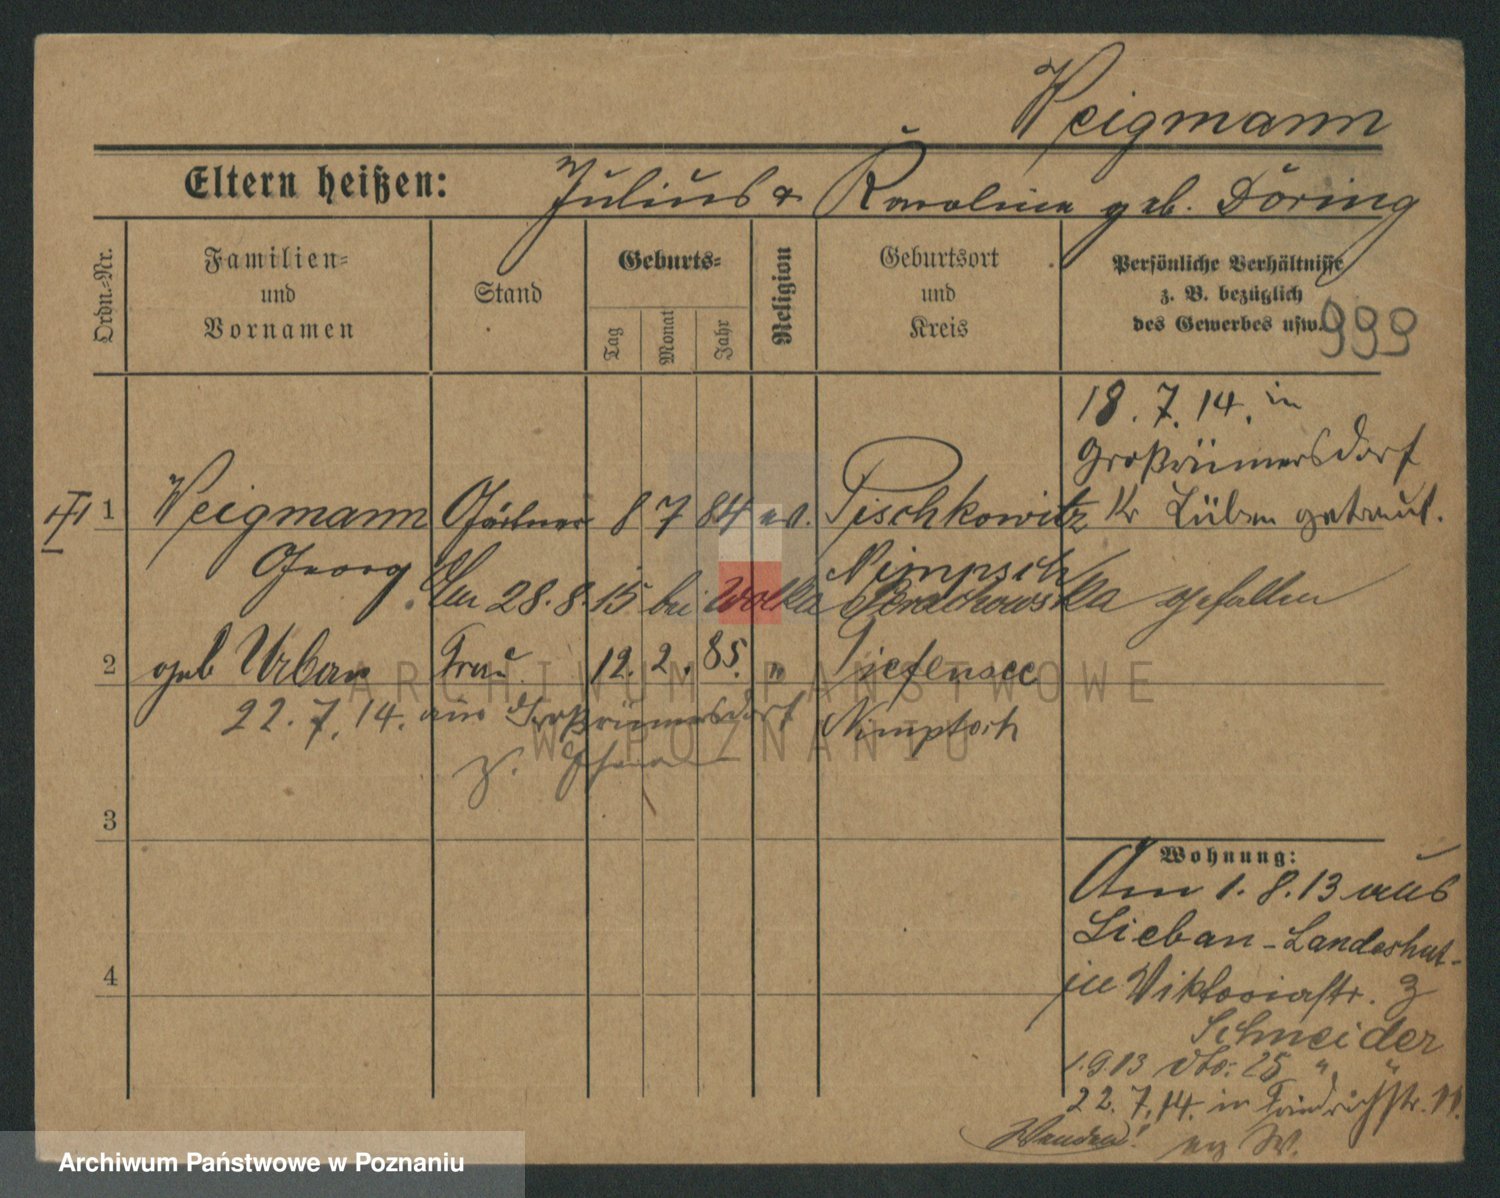 Weigmann
Eltern heißen: Julius & Karoline geb. Döring
Ordn.-Nr.
Familien-
und
Vornamen
Stand
Geburts-
Tag
Monat
Jahr
Religion
Geburtsort
und
Kreis
Persönliche Verhältnisse
z. B. bezüglich
des Gewerbes usw.
999
18. 7. 14. in
Kr Lüben getraut.
1 Weigmann Gärtner 8 7 84 ev. Pischkowitz
Georg Nimpsch
Am 28. 8. 15 bei Wolka gefallen
2 geb Urban Frau 12. 2. 85. " Tiefensee
22. 7. 14. aus Nimptsch
z.
3
4
Wohnung:
Am 1. 8. 13 aus
Liebau-Landeshut-
in Viktoriastr. 3
Schneider
1.9.13 dto. 25 " "
22. 7. 14. in Friedrichstr.
Wenden!
ARCHIWUM PAŃSTWOWE
W POZNANIU
Archiwum Państwowe w Poznaniu